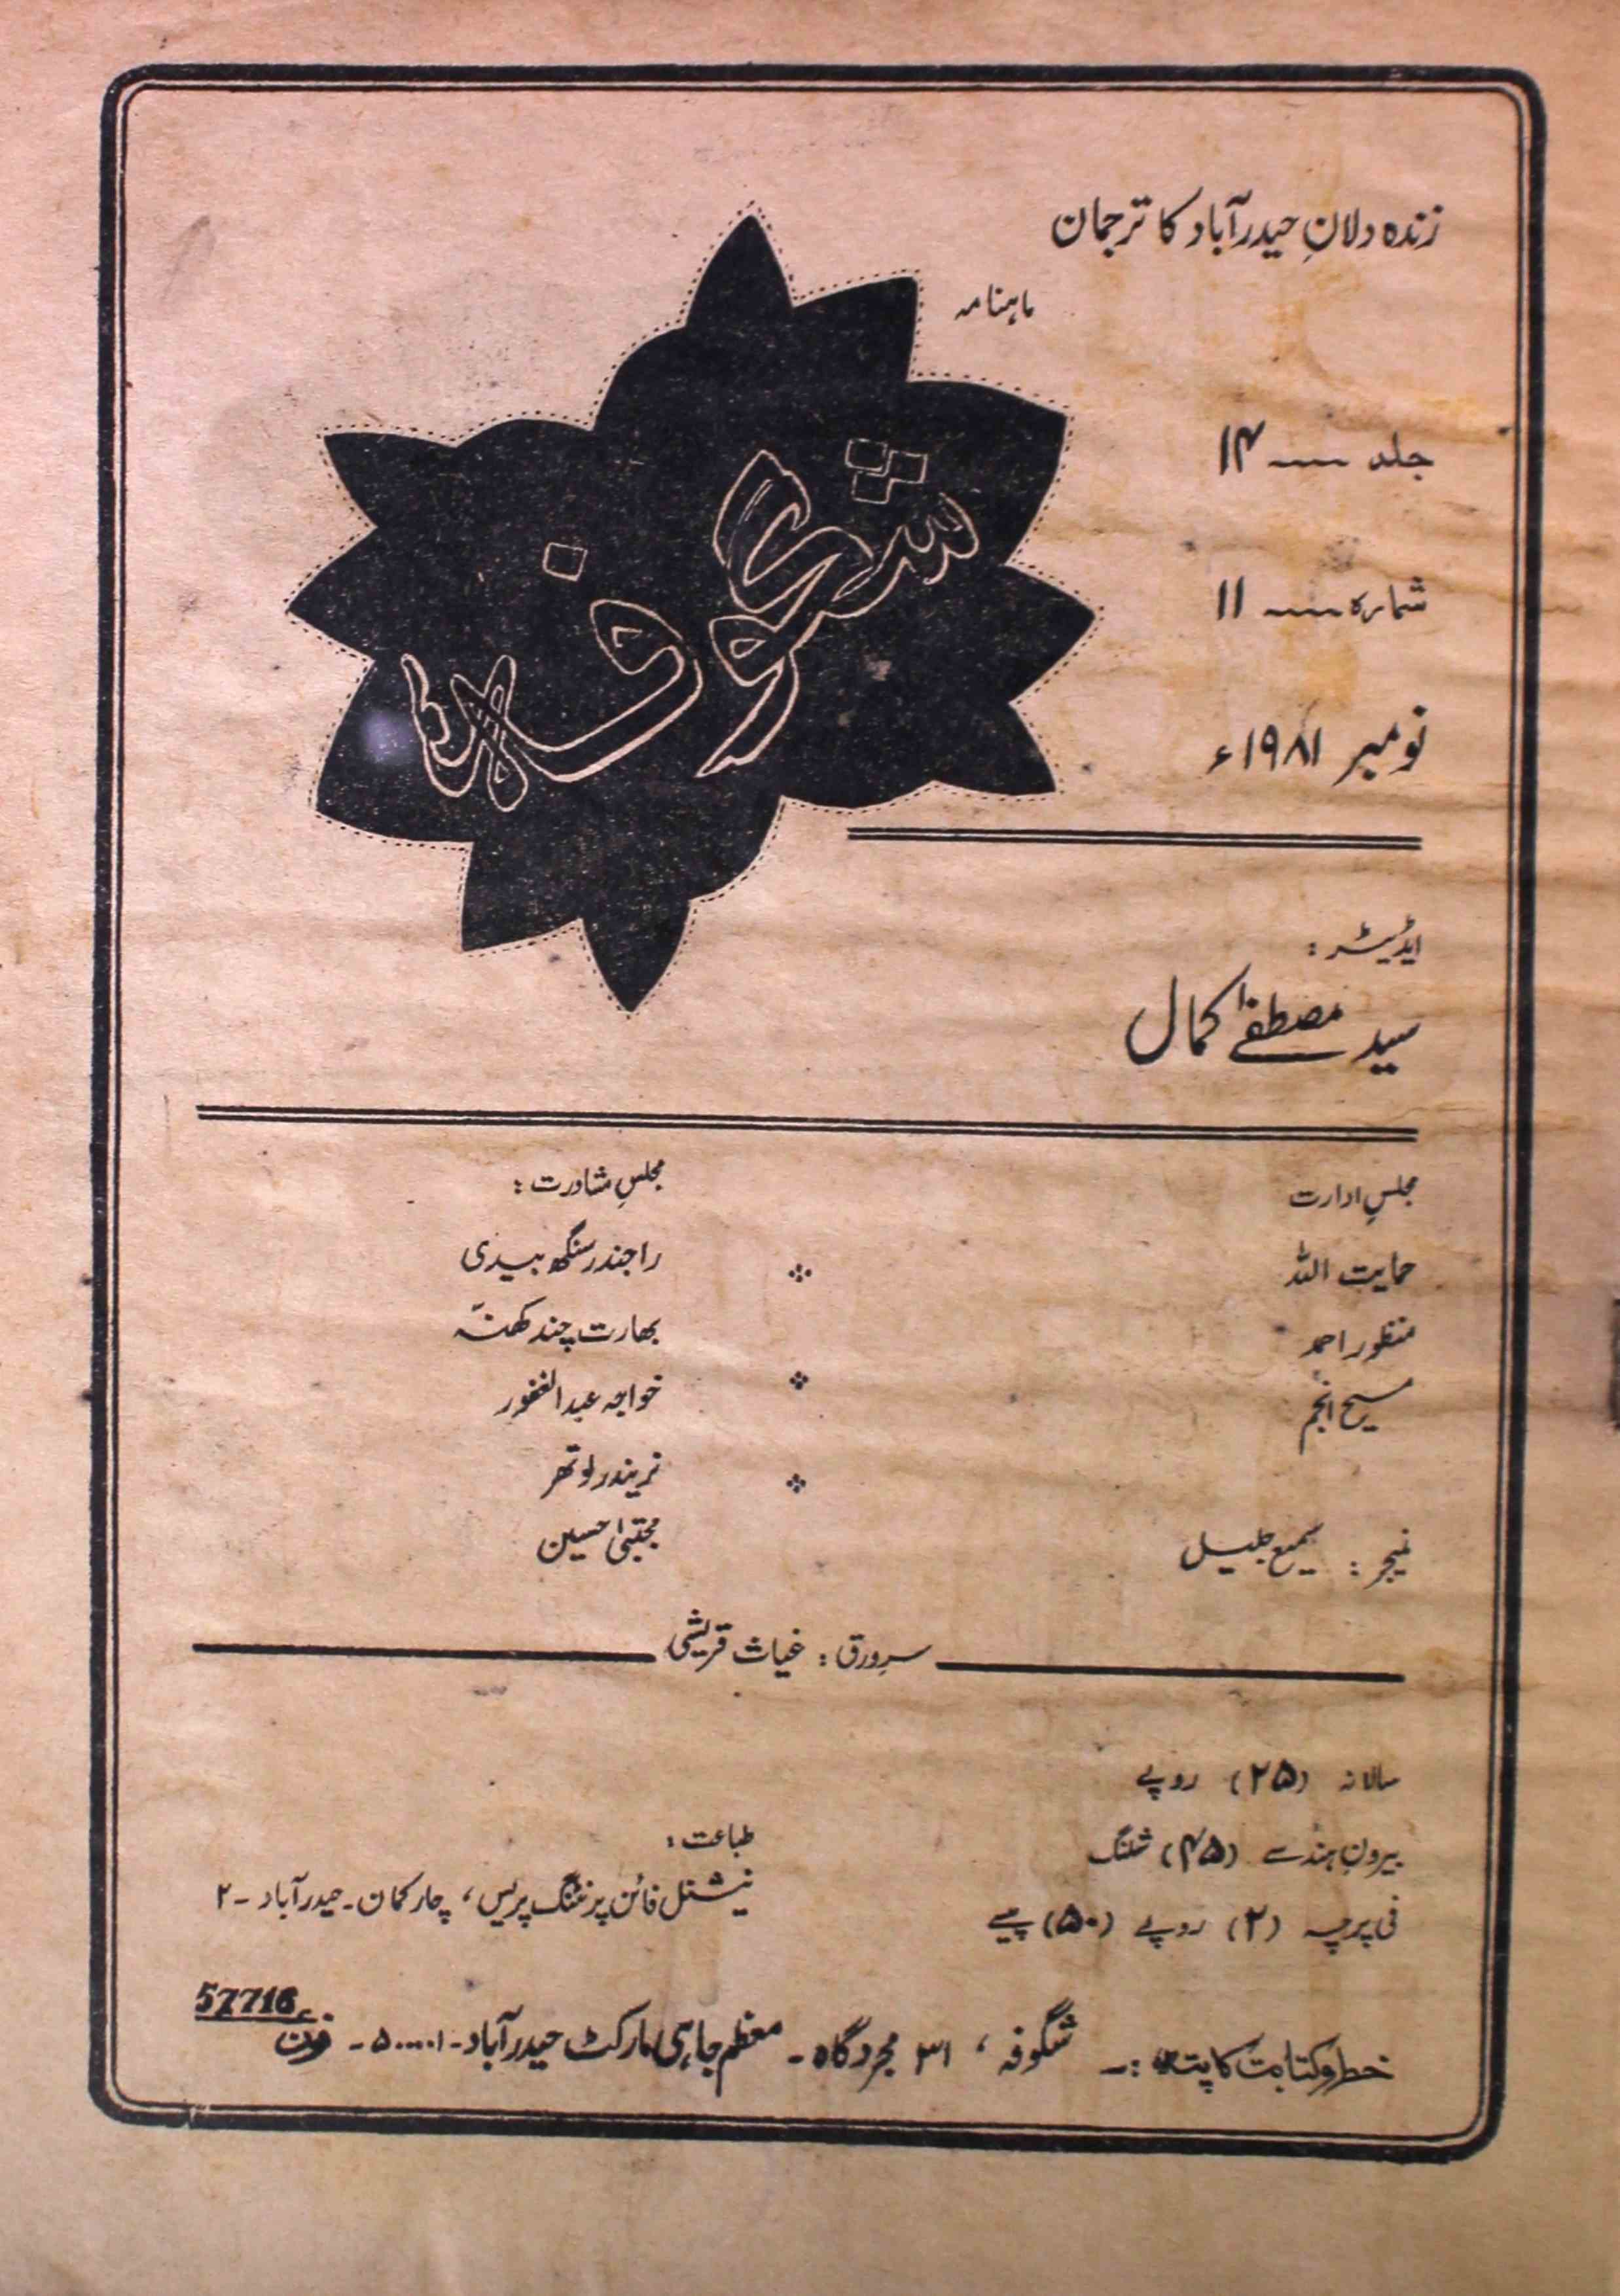 زندہ دلانِ حیدرآباد کا ترجمان
ماہنامہ
شگوفہ
جلد ۔۔۔۔ ۱۴
شمارہ ۔۔۔۔ ۱۱
نومبر ۱۹۸۱ء
ایڈیٹر :
سید مصطفےٰ کمال
مجلسِ ادارت
حمایت اللہ
منظور احمد
مسیح انجم
منیجر : سمیع جلیل
مجلسِ مشاورت :
راجندر سنگھ بیدی
بھارت چند کھنّہ
خواجہ عبدالغفور
نریندر لوتھر
مجتبیٰ حسین
سرورق : غیاث قریشی
سالانہ (۲۵) روپے
بیرونِ ہند سے (۴۵) شلنگ
فی پرچہ (۲) روپے (۵۰) پیسے
طباعت :
نیشنل فائن پرنٹنگ پریس، چارکمان۔ حیدرآباد ۔ ۲
خط و کتابت کا پتہ :۔ شگوفہ ، ۳۱ مجردگاہ ۔ معظم جاہی مارکٹ حیدرآباد ۔ ۵۰۰۰۰۱ ۔ فون 57716